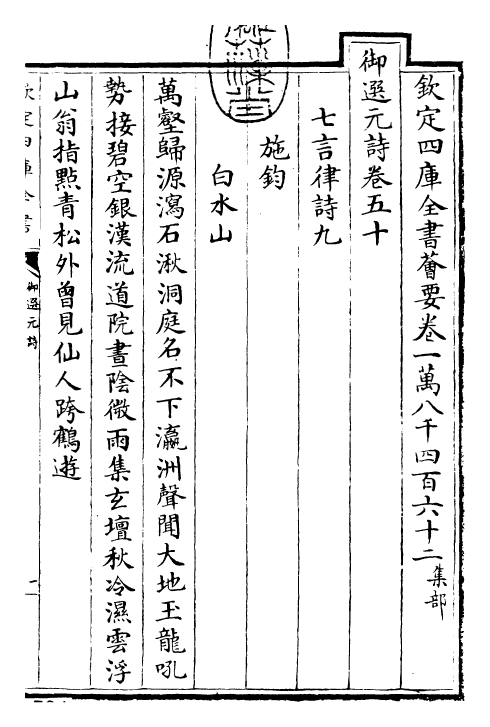 欽定四庫全書薈要卷一萬八千四百六十二集部
御選元詩卷五十
七言律詩九
施鈞
白水山
萬壑歸源瀉石湫洞庭名不下瀛洲聲聞大地玉龍吼
勢接碧空銀漢流道院晝陰微雨集玄壇秋冷濕雲浮
山翁指點青松外曾見仙人跨鶴遊
御選元詩